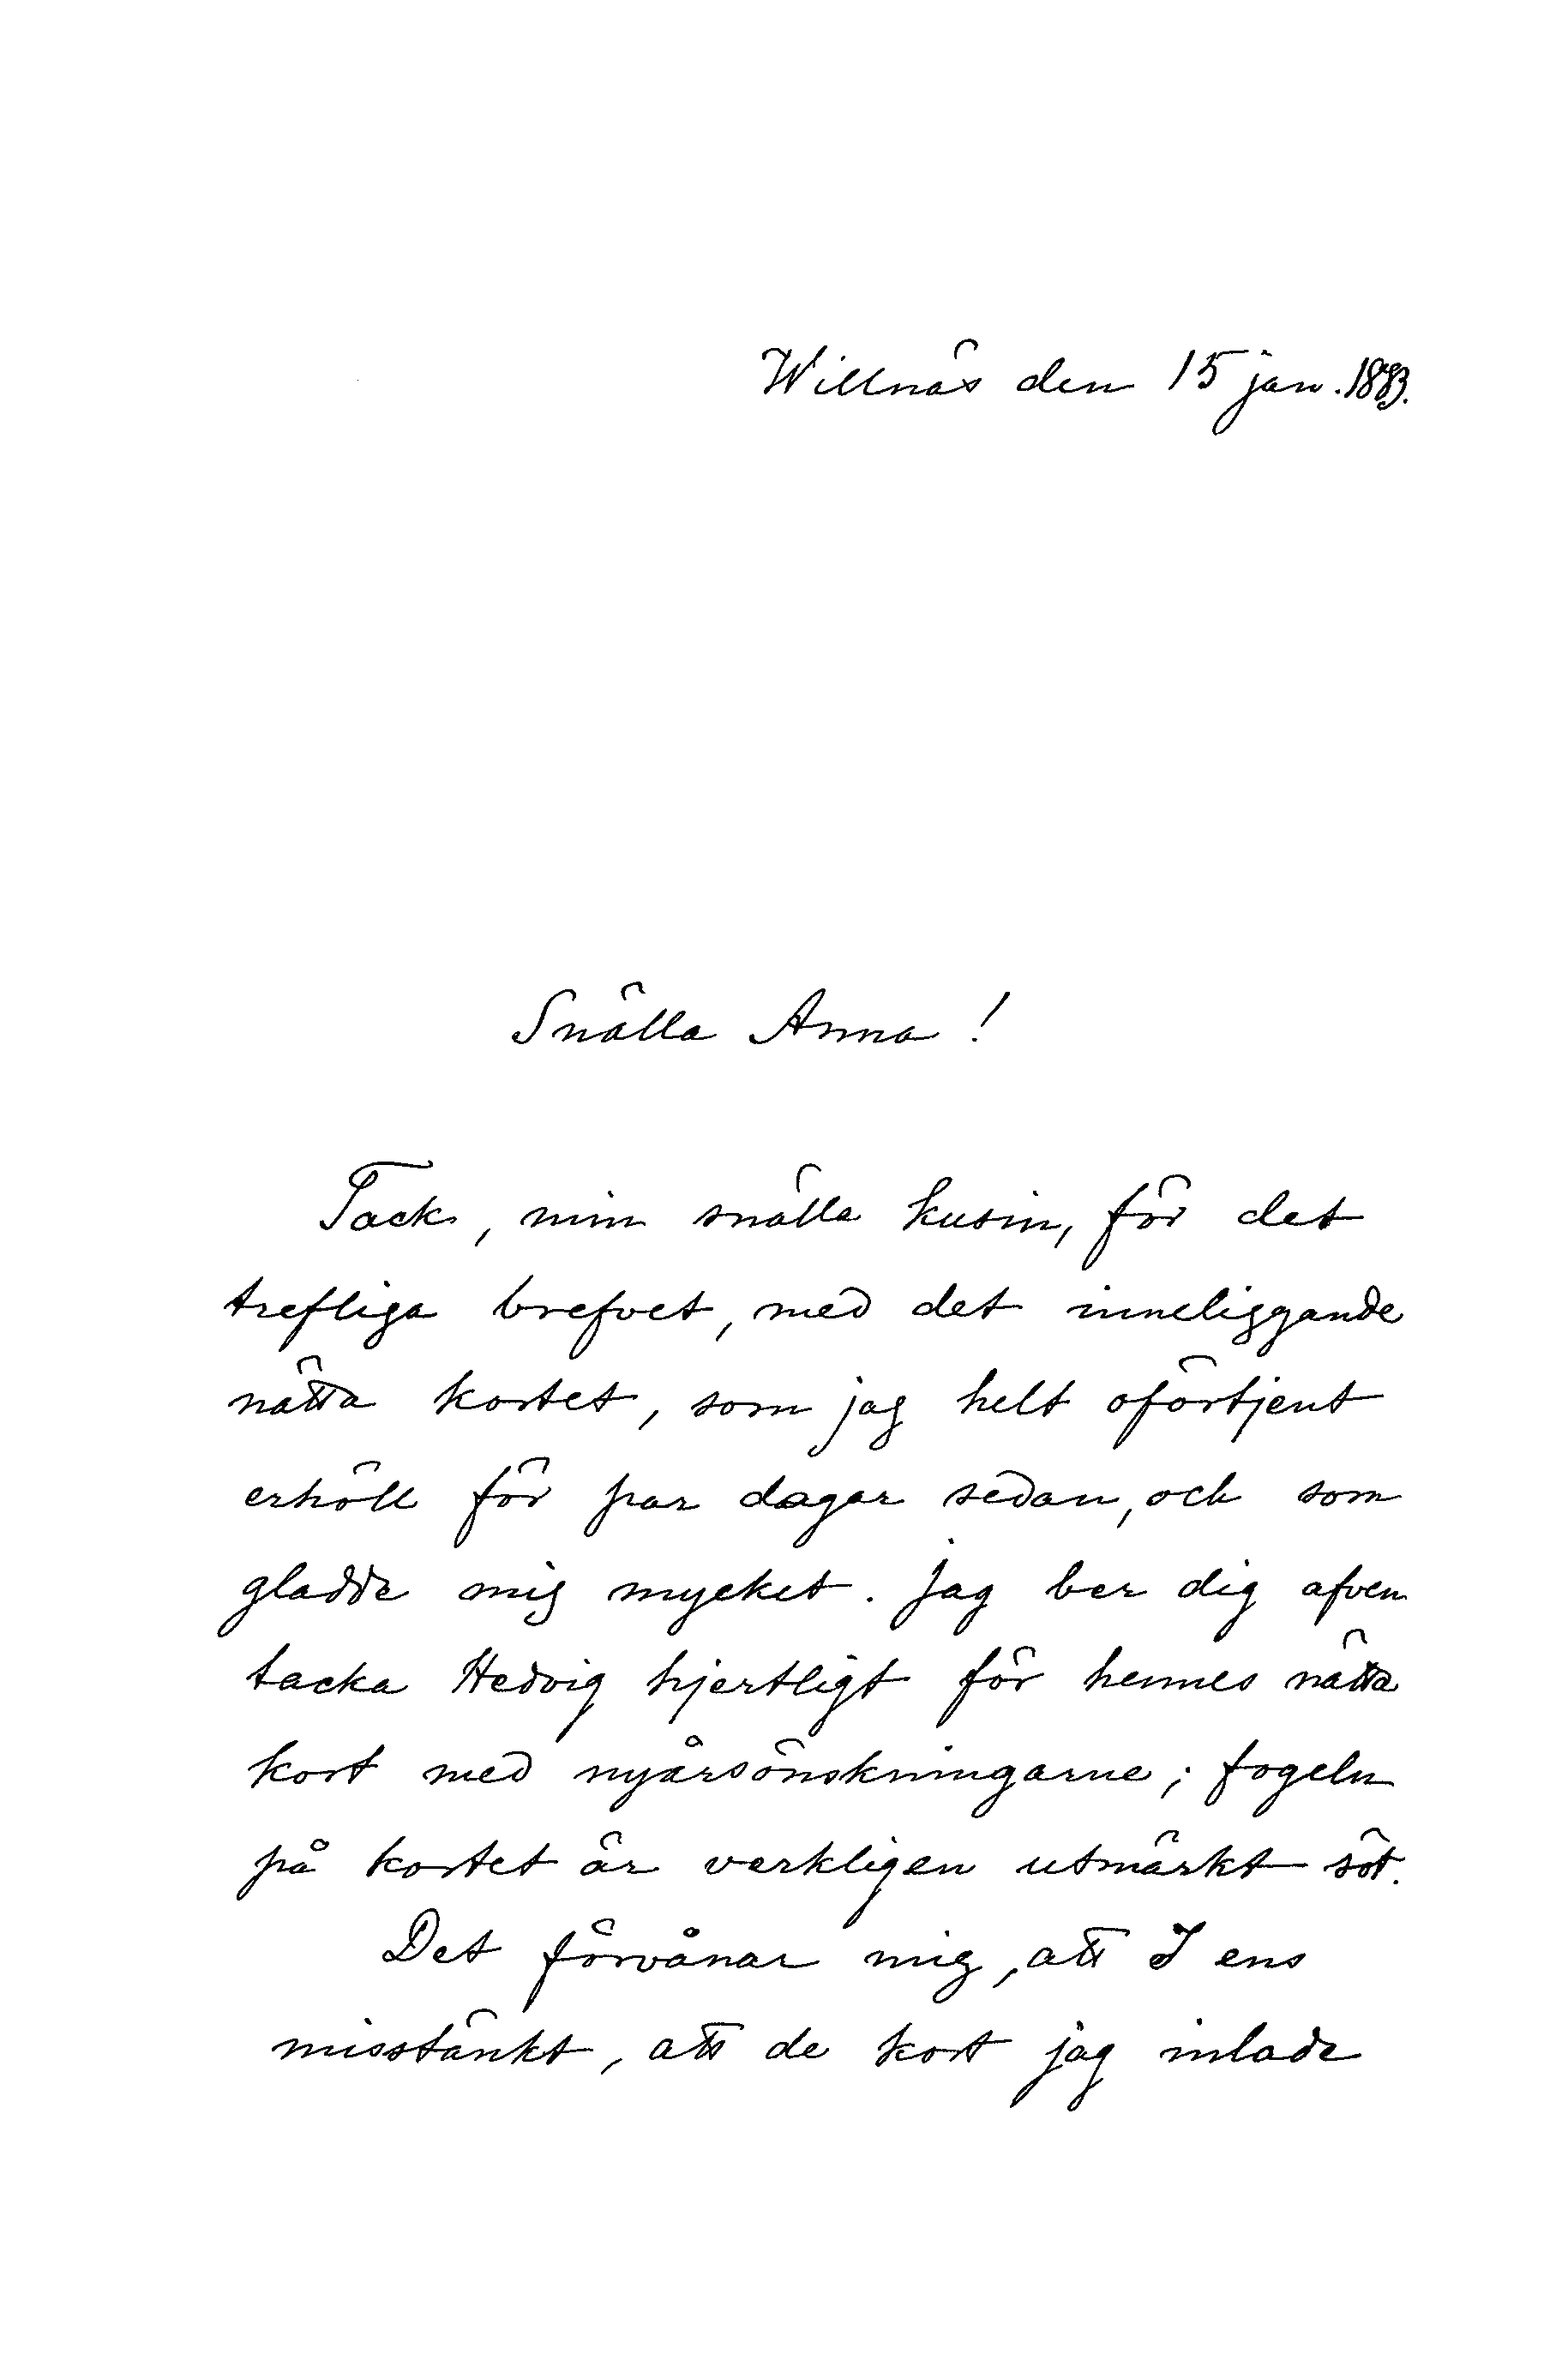 Willnäs den 15 jan. 1883.
Snälla Anna!
Tack, min snälla kusin, för det
trefliga brefvet, med det inneliggande
nätta kortet, som jag helt oförtjent
erhöll för par dagar sedan, och som
gladde mig mycket. Jag ber dig afven
tacka Hedvig hjertligt för hennes nätta
kort med nyårsönskningarne; fogeln
på kortet är verkligen utmärkt söt.
Det förvånar mig, att I ens
misstänkt, att de kort jag inlade